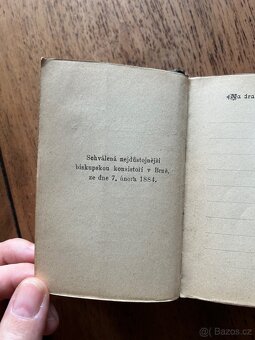 Schválená nejdůstojnější
biskupskou konsistoří v Brně,
ze dne 7. února 1884.
Na
Bazos.cz